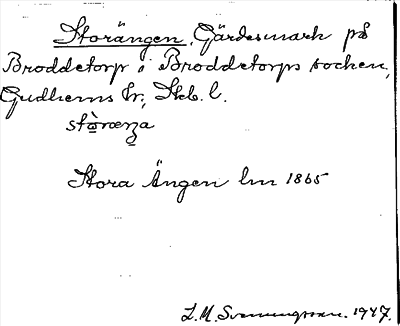 Storängen, Gärdesmark på
Broddetorp i Broddetorps socken,
Gudhems hr, Skb. l.
Stora Ängen lm 1865
L. M. Svenungsson. 1947.